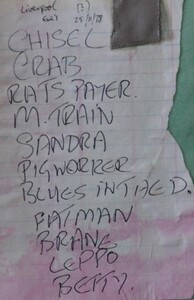 Liverpool (3)
Eric's 25/11/78
CHISEL
CRAB
RATS PAYER.
M. TRAIN
SANDRA
PIGWORKER
BLUES IN THE D.
BATMAN
BRANE
LEPPO
BETTY.